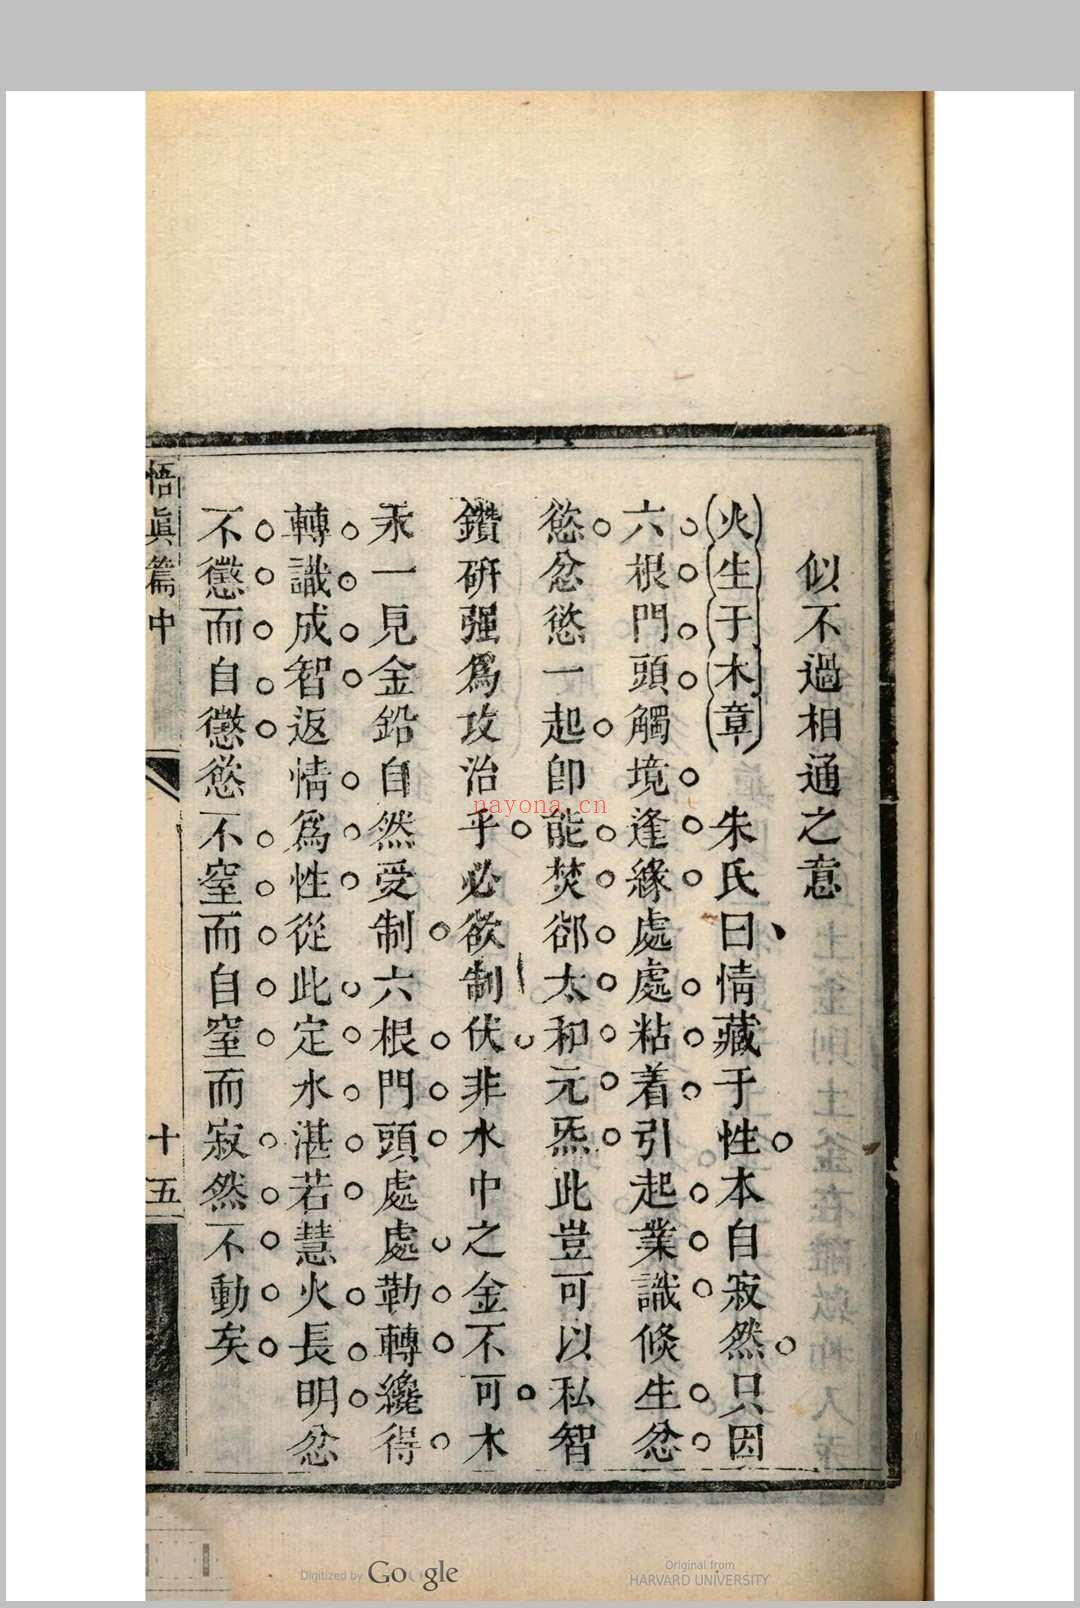 似不過相通之意
火生于木章 朱氏曰情藏于性本自寂然只因
六根門頭觸境逢緣處處粘着引起業識倐生忿
慾忿慾一起卽能焚郤太和元炁此豈可以私智
鑽硏强爲攻治乎必欲制伏非水中之金不可木
汞一見金鉛自然受制六根門頭處處勒轉纔得
轉識成智返情爲性從此定水湛若慧火長明忿
不懲而自懲慾不窒而自窒而寂然不動矣
悟眞篇中
十五
nayona.cn
Digitized by Google
Original from
HARVARD UNIVERSITY